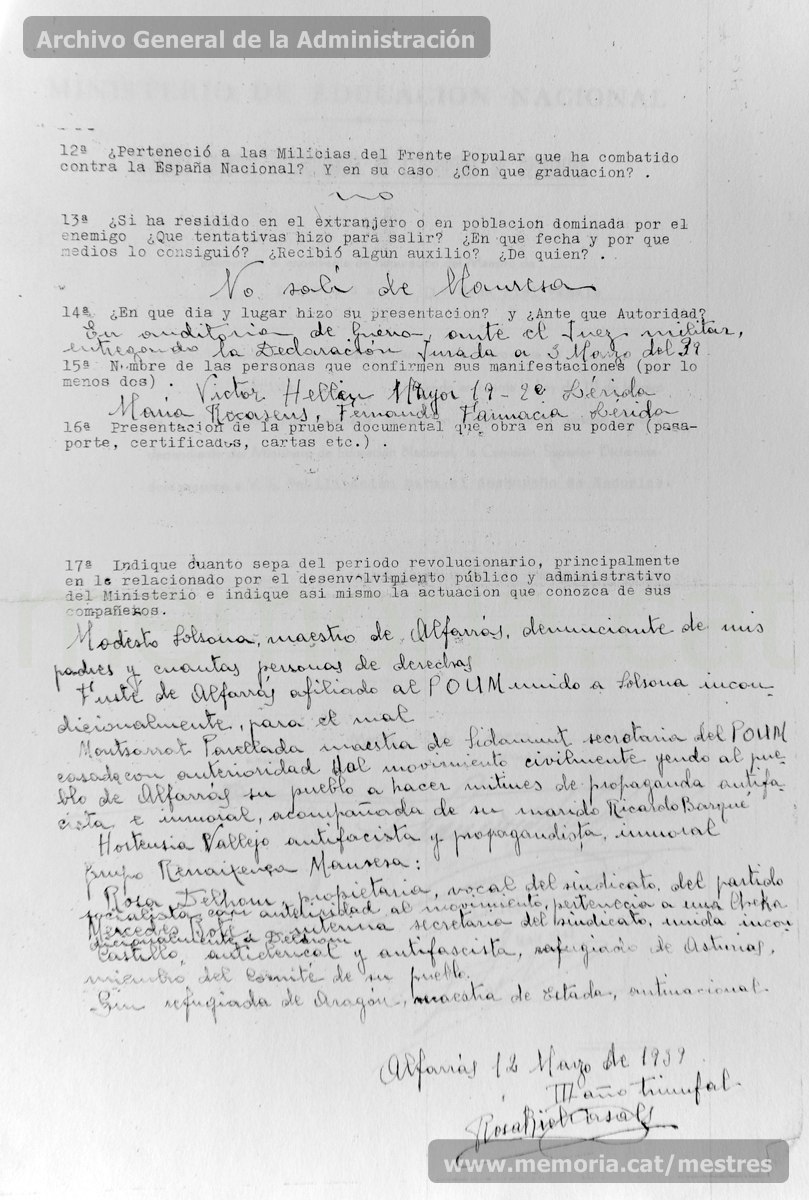 Archivo General de la Administración
MINISTERIO DE EDUCACION NACIONAL
12ª ¿Perteneció a las Milicias del Frente Popular que ha combatido
contra la España Nacional? Y en su caso ¿Con que graduacion? .
no
13ª ¿Si ha residido en el extranjero o en poblacion dominada por el
enemigo ¿Que tentativas hizo para salir? ¿En que fecha y por que
medios lo consiguió? ¿Recibió algun auxilio? ¿De quien? .
No salí de Manresa
14ª ¿En que dia y lugar hizo su presentacion? y ¿Ante que Autoridad?
En auditoria de Guerra, ante el Juez militar,
entregando la Declaración Jurada a 3 Marzo del 39
15ª Nombre de las personas que confirmen sus manifestaciones (por lo
menos dos) .
Victor Hellín Mayor 19-2º Lérida
María Rocasens, Fernando Farmacia Lerida
16ª Presentacion de la prueba documental que obra en su poder (pasa-
porte, certificados, cartas etc.) .
17ª Indique cuanto sepa del periodo revolucionario, principalmente
en lo relacionado por el desenvolvimiento público y administrativo
del Ministerio e indique asi mismo la actuacion que conozca de sus
compañeros.
Modesto Solsona, maestro de Alfarrás, denunciante de mis
padres y cuantas personas de derechas
Fusté de Alfarrás afiliado al POUM unido a Solsona incon-
dicionalmente, para el mal
Montsarrat maestra de Sidamunt secretaria del POUM
casada con anterioridad al movimiento civilmente yendo al pue-
blo de Alfarrás su pueblo a hacer mitines de propaganda antifa-
cista e inmoral, acompañada de su marido Ricardo Barqué
Hortensia Vallejo antifacista y propagandista, inmoral
Grupo Renaixença Manresa:
Rosa Delhom, propietaria, vocal del sindicato, del partido
socialista con anterioridad al movimiento, pertenecia a una Cheka
Mercedes interina secretaria del sindicato, unida incon-
dicionalmente a Delhom
Castillo, anticlerical y antifascista, refugiado de Asturias,
miembro del Comité de su pueblo.
refugiada de Aragón, maestra de Estado, antinacional.
Alfarrás 12 Marzo de 1939
III año triunfal.
Rosa Riol Casals
www.memoria.cat/mestres